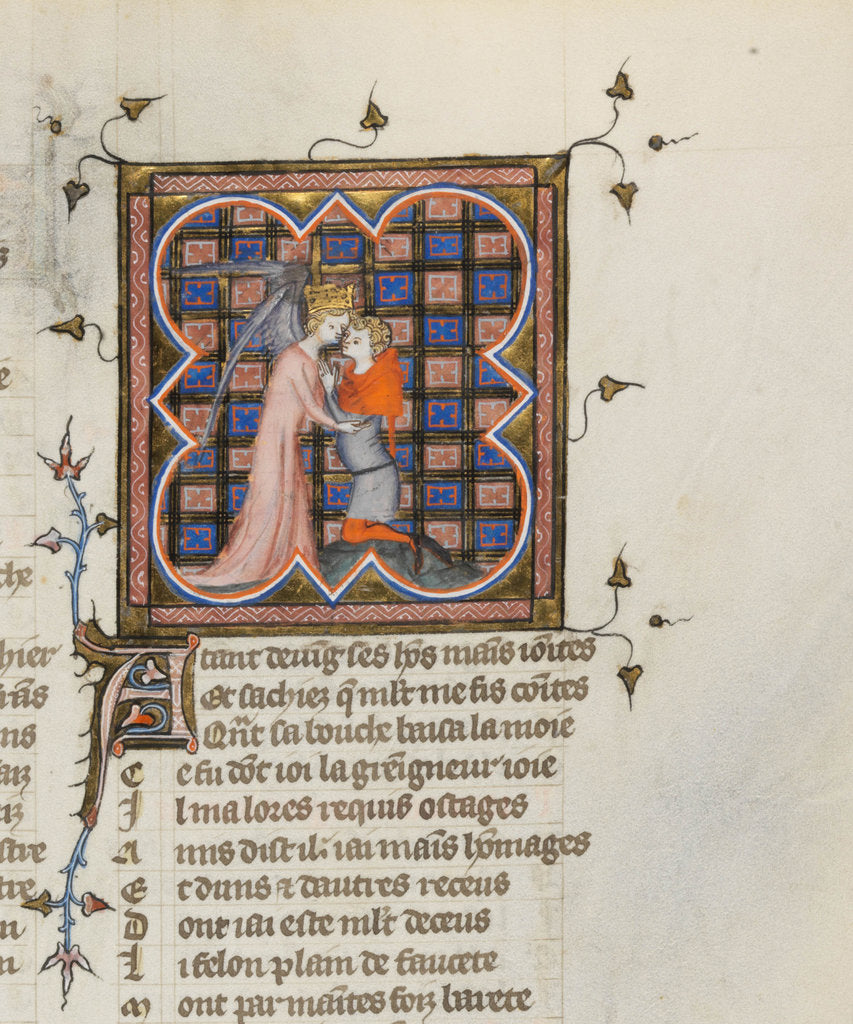 Atant deuīg ses hōs maīs iōites
Et sachiez q̄ mlt me fis cōites
Qn̄t sa bouche baisa la moie
Ce fu dōt ioi la greīgneur ioie
Il ma lores requis ostages
Amis dist il. iai maīs hōmages
Et duns ⁊ dautres receus
Dont iai este mlt deceus
Li felon plain de faucete
Mont par maītes foiz barete